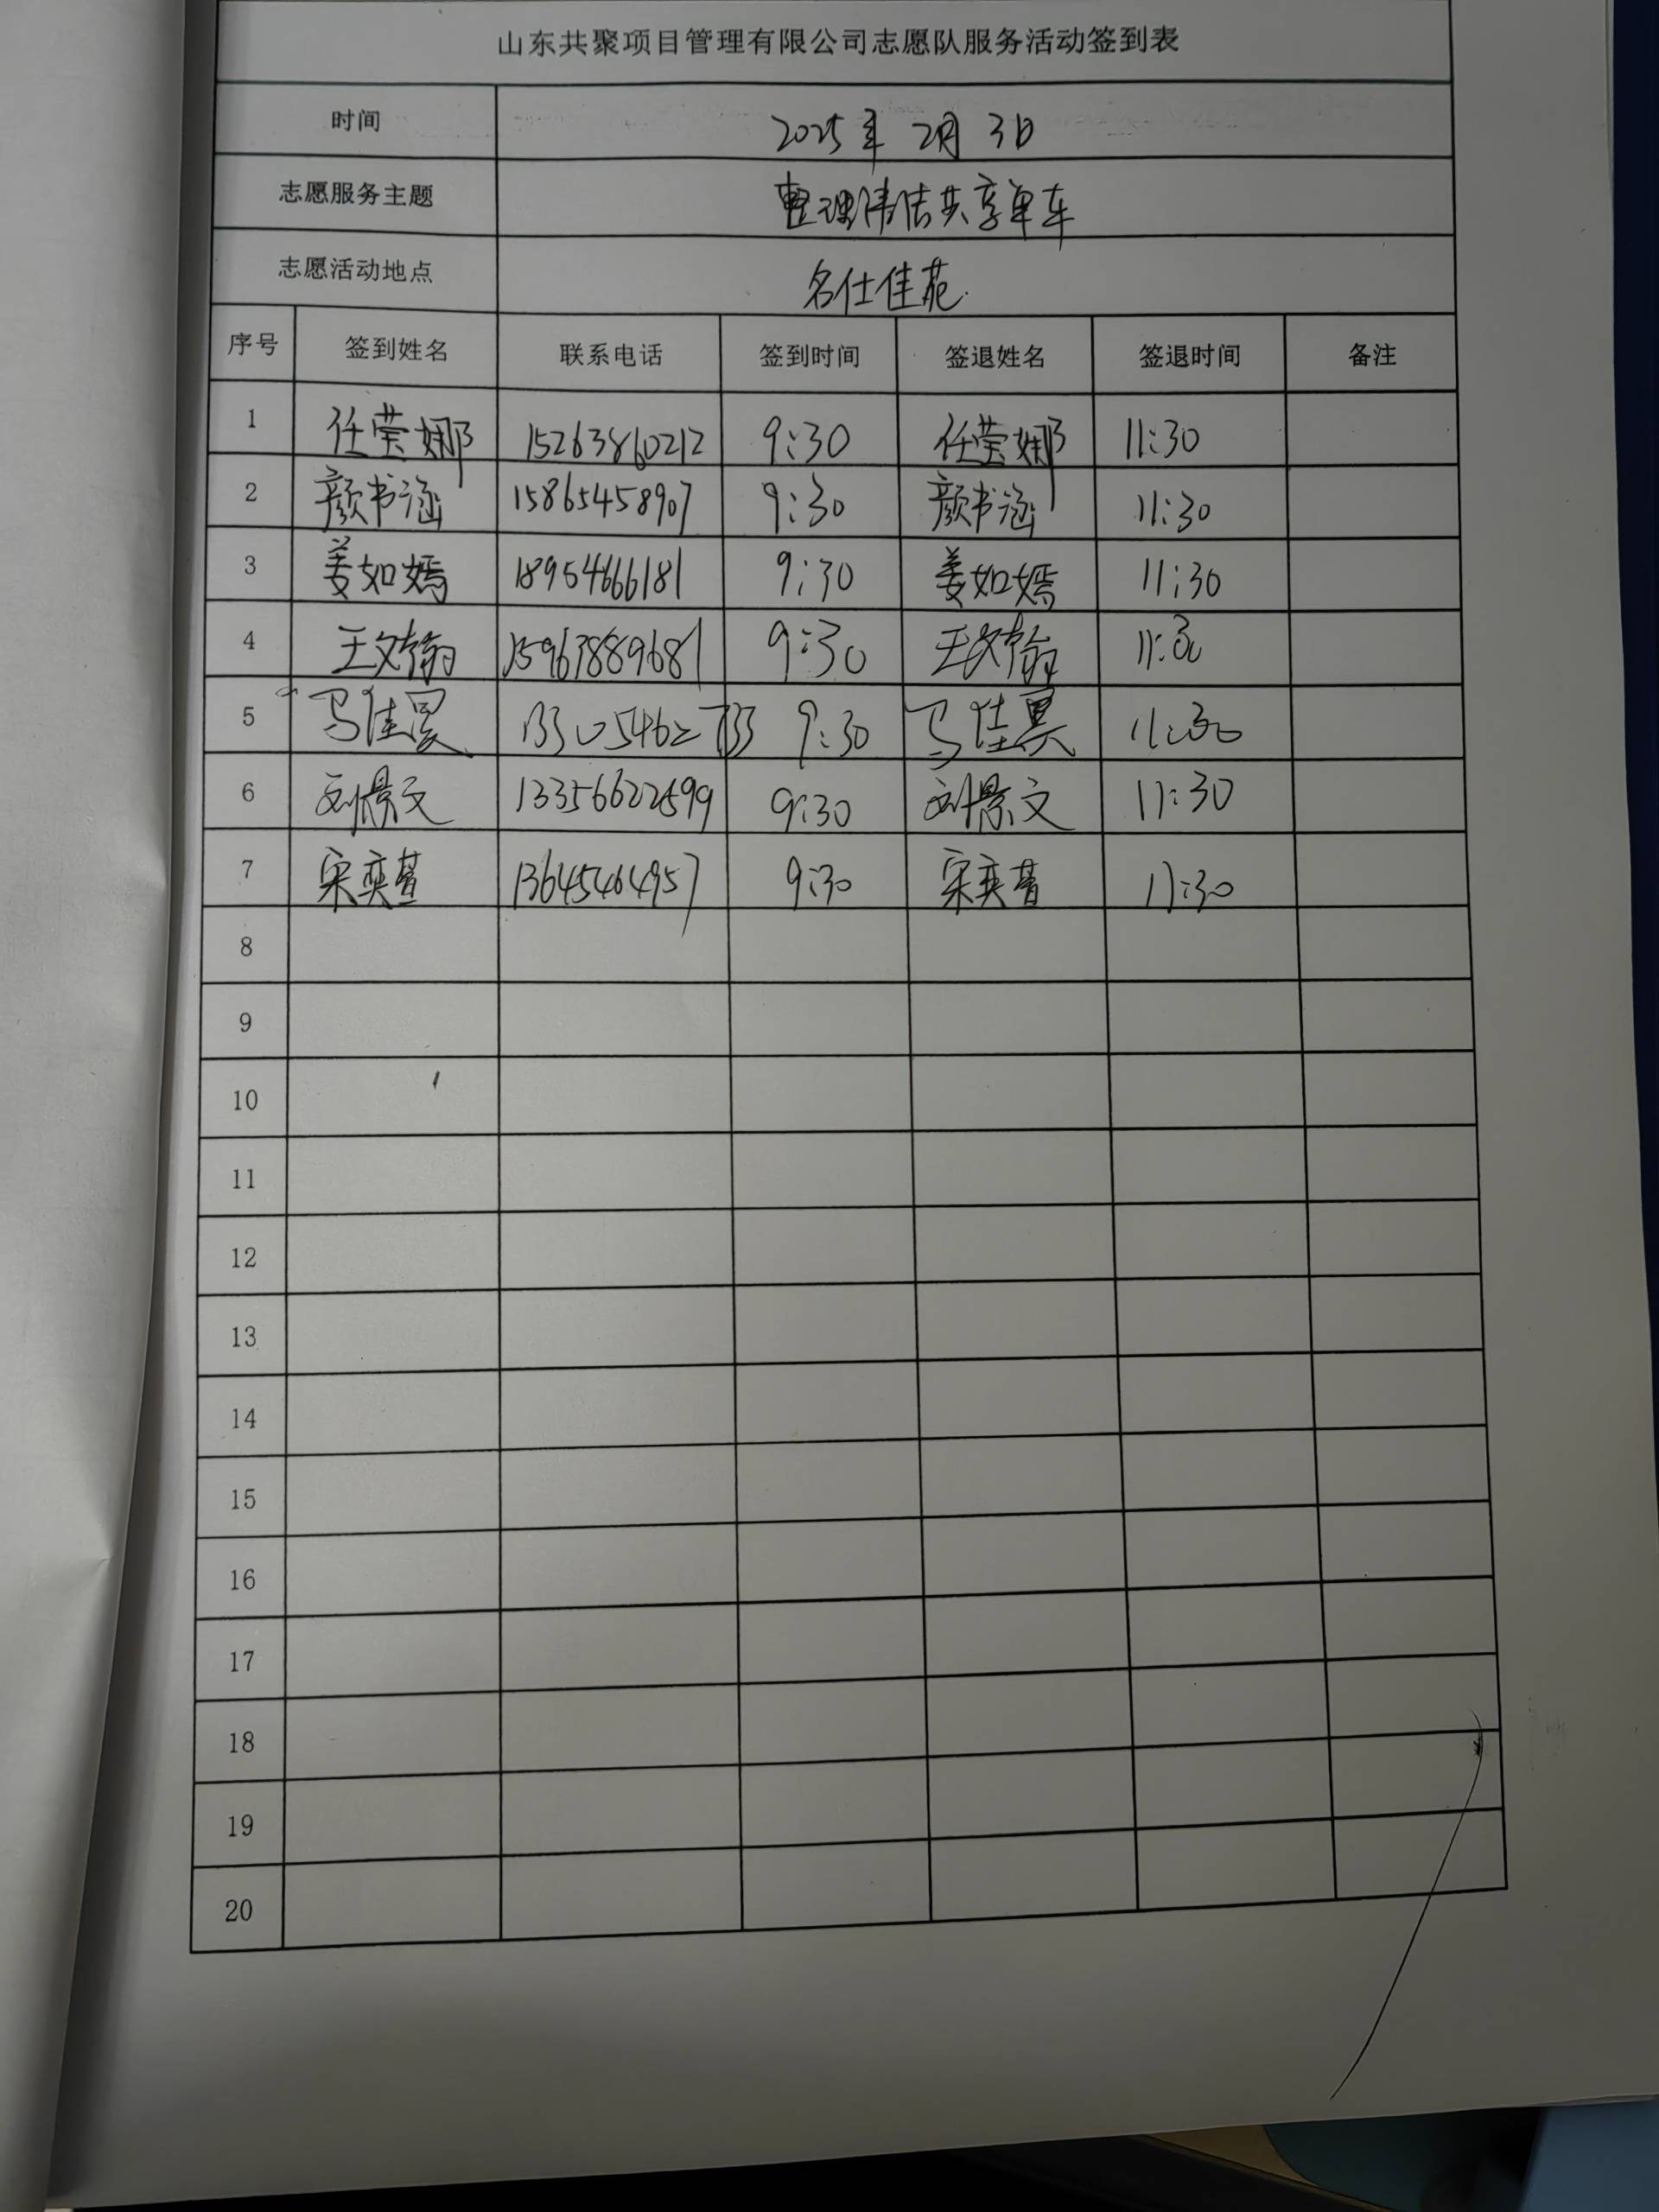 山东共聚项目管理有限公司志愿队服务活动签到表
时间 2025年 2月 3日
志愿服务主题 整理违停共享单车
志愿活动地点 名仕佳苑
序号 签到姓名 联系电话 签到时间 签退姓名 签退时间 备注
1 任莹娜 15263860212 9:30 任莹娜 11:30
2 颜书涵 15865458907 9:30 颜书涵 11:30
3 姜如嫣 18954666181 9:30 姜如嫣 11:30
4 王文翰 15963889681 9:30 王文翰 11:30
5 马佳昊 13305462733 9:30 马佳昊 11:30
6 刘景文 13356622599 9:30 刘景文 11:30
7 宋奕萱 13645464957 9:30 宋奕萱 11:30
8
9
10
11
12
13
14
15
16
17
18
19
20